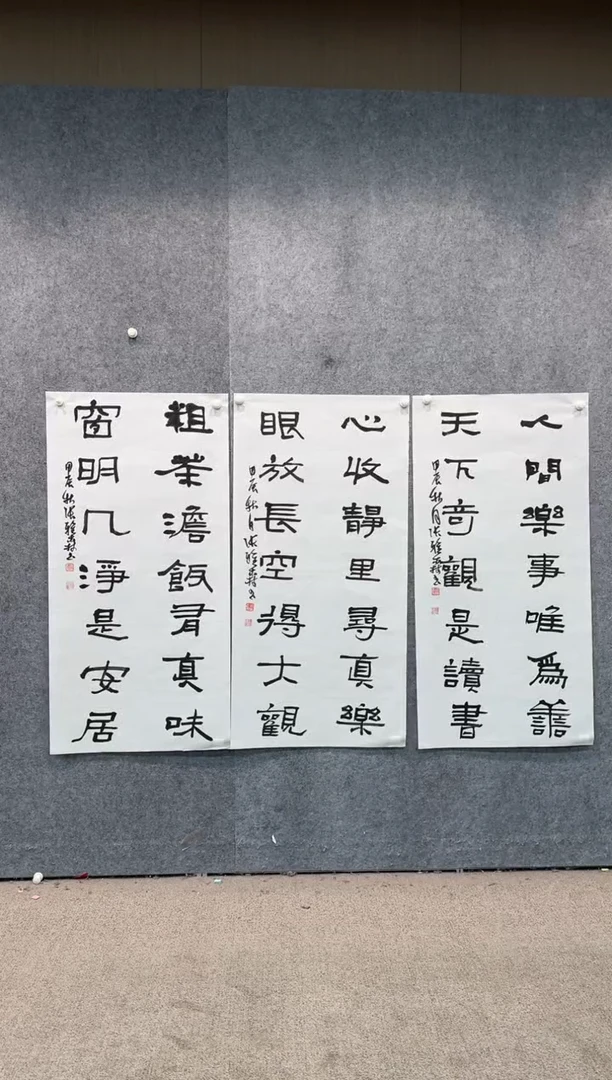 人間樂事唯爲善
天下奇觀是讀書
甲辰秋月
心收靜里尋真樂
眼放長空得大觀
甲辰秋月
粗茶澹飯有真味
窗明几淨是安居
甲辰秋